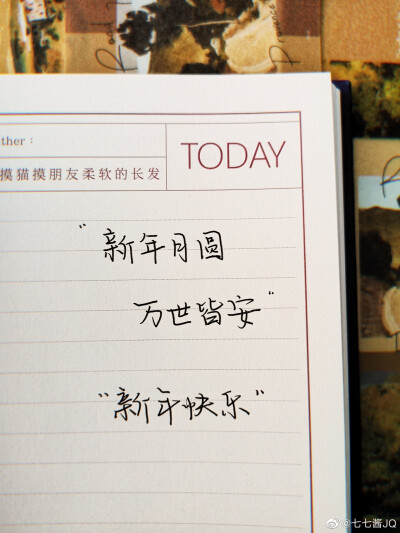 ther：
TODAY
摸猫摸朋友柔软的长发
“新年月圆
万世皆安”
“新年快乐”
@七七酱JQ